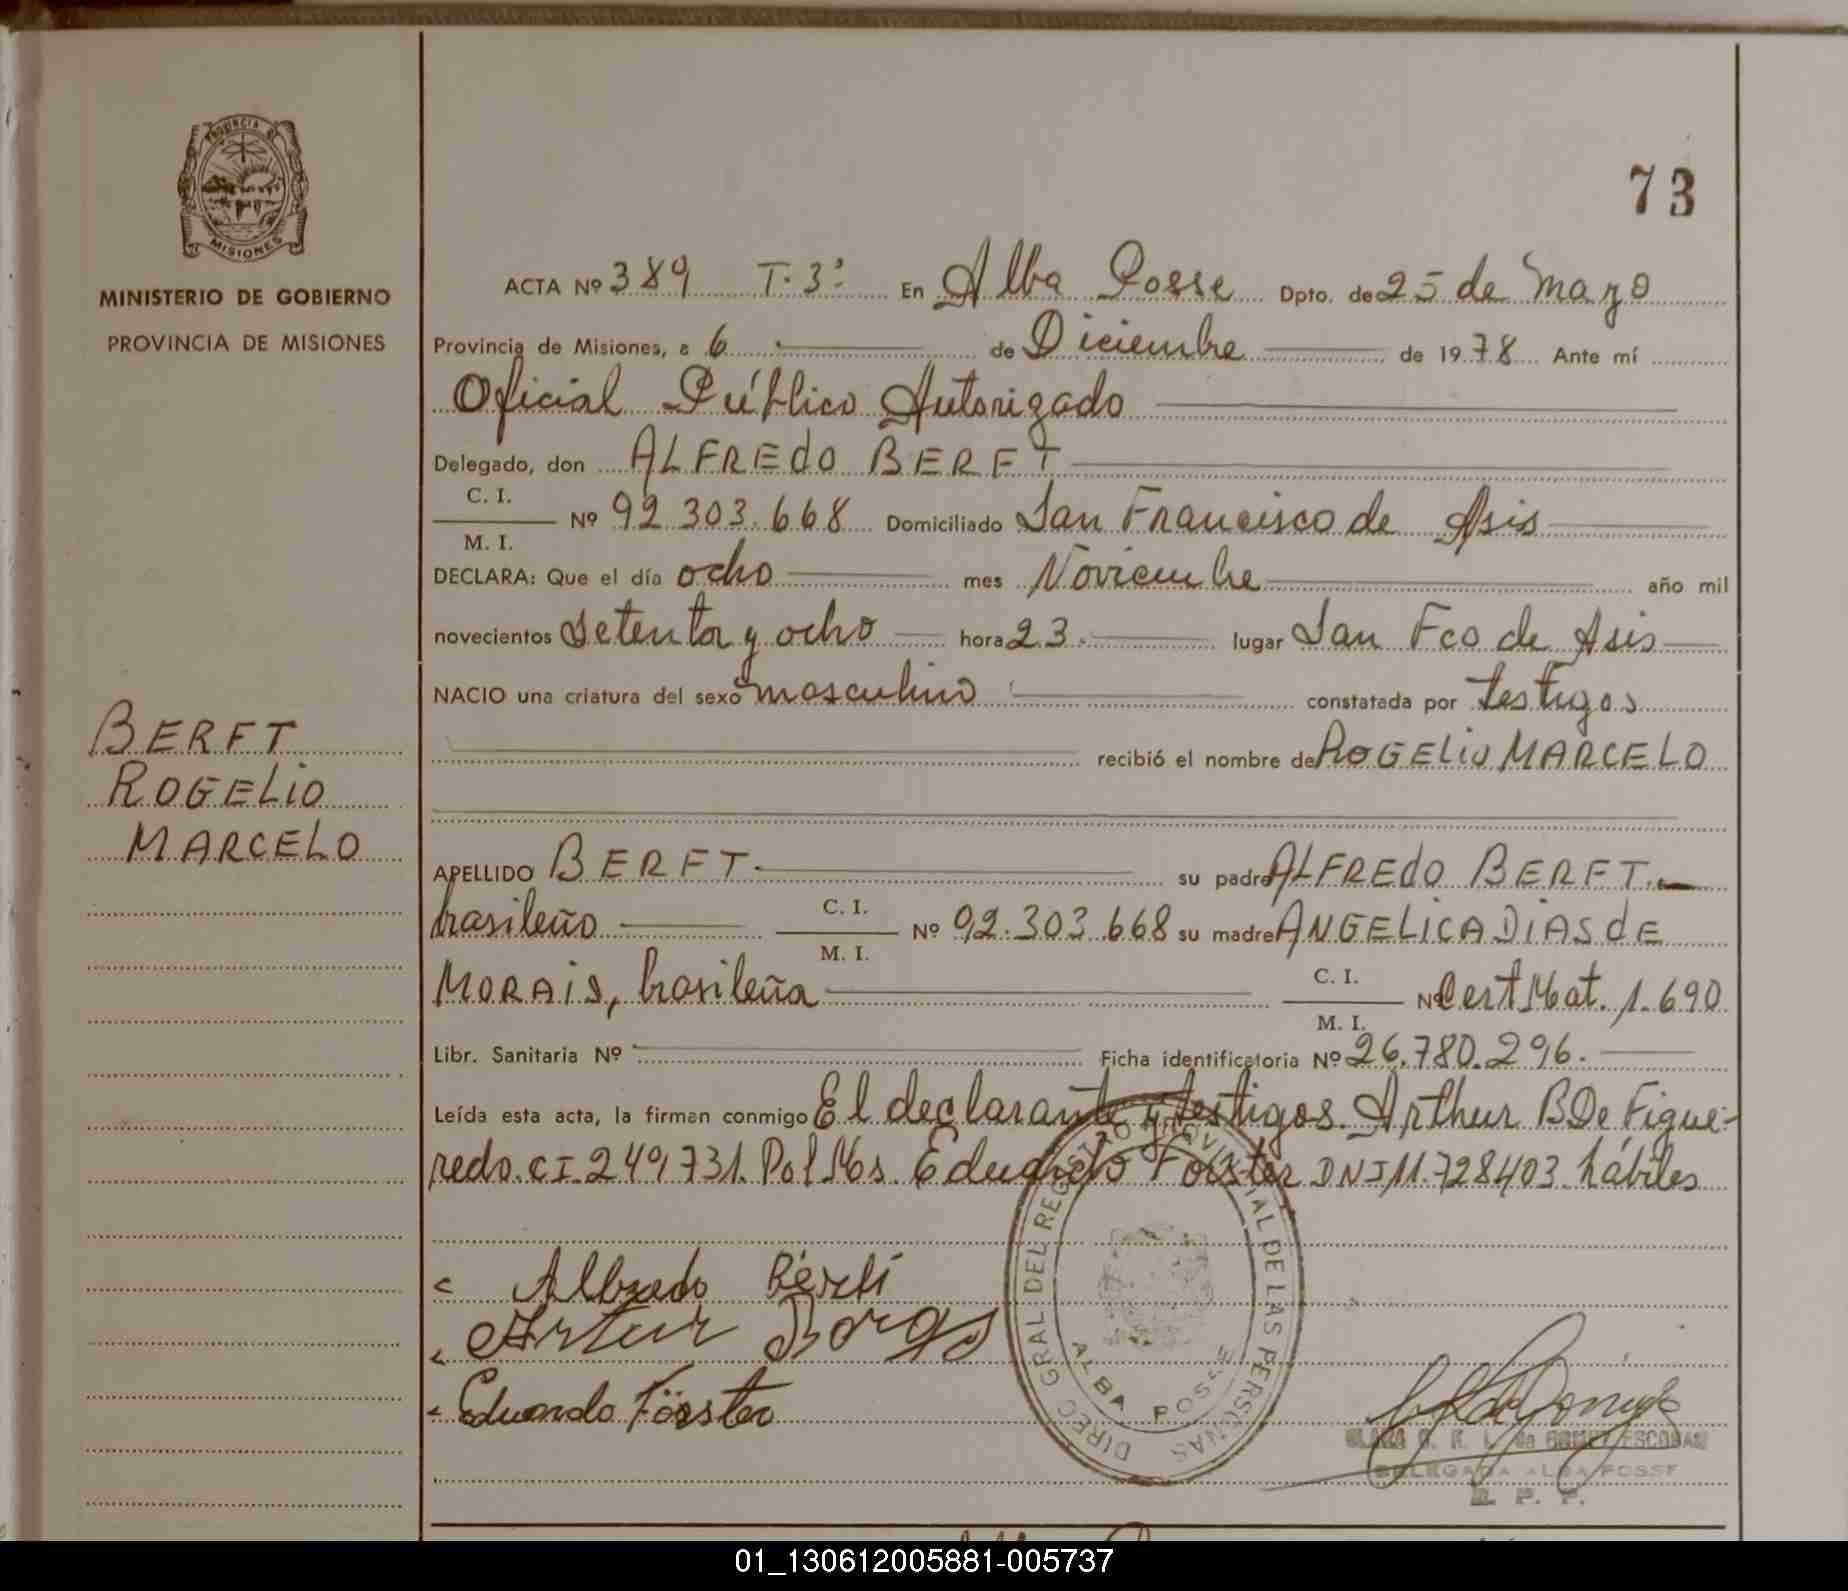 PROVINCIA DE
MISIONES
MINISTERIO DE GOBIERNO
PROVINCIA DE MISIONES
BERFT
ROGELIO
MARCELO
73
ACTA Nº 389 T. 3º En Alba Posse Dpto. de 25 de Mayo
Provincia de Misiones, a 6 de Diciembre de 1978 Ante mí
Oficial Público Autorizado
Delegado, don ALFREdO BERFT
C. I.
Nº 92.303.668 Domiciliado San Francisco de Asis
M. I.
DECLARA: Que el día ocho mes Noviembre año mil
novecientos Setenta y ocho hora 23. lugar San Fco de Asis
NACIO una criatura del sexo masculino constatada por testigos
recibió el nombre de ROGELIO MARCELO
APELLIDO BERFT su padre ALFREdO BERFT.
C. I.
brasileño Nº 92.303.668 su madre ANGELICA DIAS dE
M. I.
C. I.
MORAIS, brasileña Nº Cert Mat. 1.690
M. I.
Libr. Sanitaria Nº Ficha identificatoria Nº 26.780.296.
Leída esta acta, la firman conmigo El declarante y testigos. Arthur B De Figue-
redo. CI. 249,731. Pol Ms. Eduardo Föster DNI 11.728403 hábiles
Artur Borgs
Eduardo Förster
DIREC GRAL DEL REGISTRO PROVINCIAL DE LAS PERSONAS
ALBA POSSE
DELEGADA ALBA POSSE
R. P. P.
01_130612005881-005737